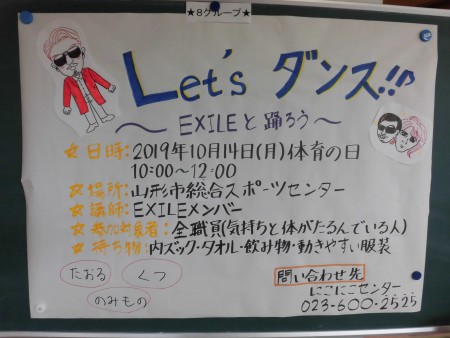 ★8グループ★
Let's ダンス!!
～EXILEと踊ろう～
☆日時:2019年10月14日(月)体育の日
10:00～12:00
☆場所:山形市総合スポーツセンター
☆講師:EXILEメンバー
☆参加対象者:全職員(気持ちと体がたるんでいる人)
☆持ち物:内ズック・タオル・飲み物・動きやすい服装
たおる くつ
のみもの
問い合わせ先
にこにこセンター
023-600-2525